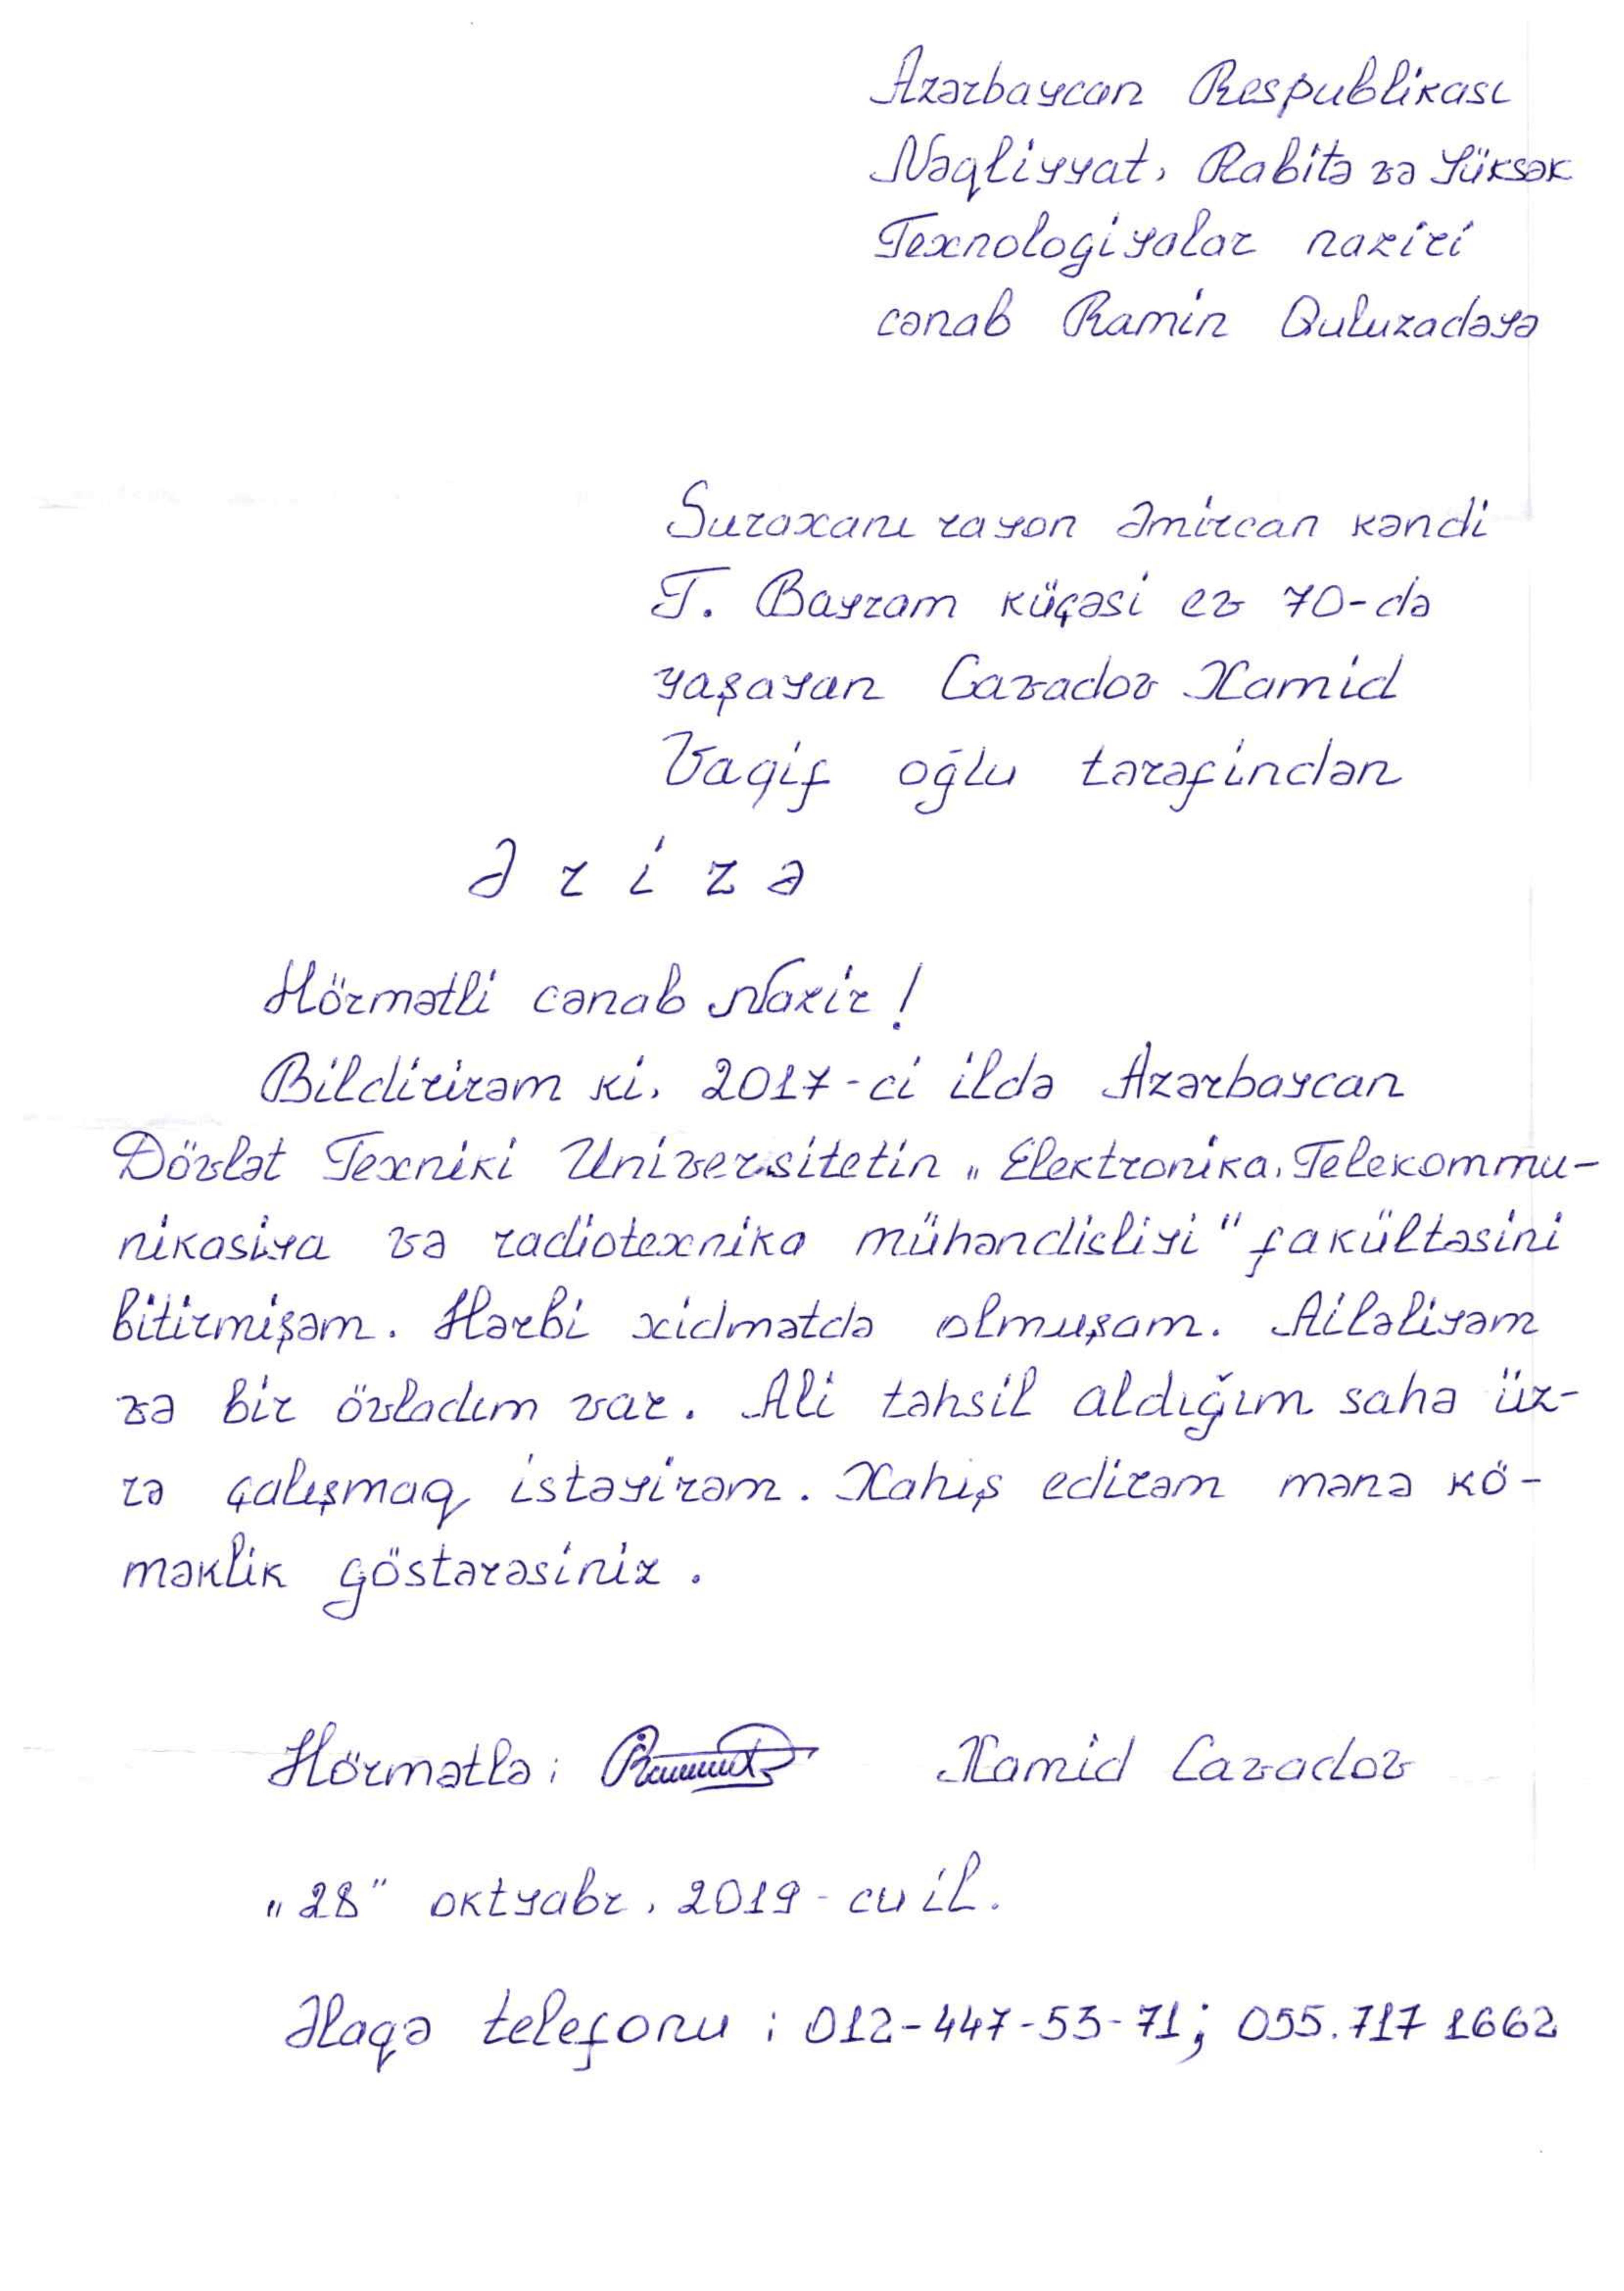 Azərbaycan Respublikası
Nəqliyyat, Rabitə və Yüksək
Texnologiyalar naziri
cənab Ramin Quluzadəyə
Suraxanı rayon Əmircan kəndi
T. Bayram küçəsi ev 70-də
yaşayan Cavadov Xamid
Vaqif oğlu tərəfindən
Ə r i z ə
Hörmətli cənab Nazir!
Bildirirəm ki, 2017-ci ildə Azərbaycan
Dövlət Texniki Universitetin „Elektronika, Telekommu-
nikasiya və radiotexnika mühəndisliyi" fakültəsini
bitirmişəm. Hərbi xidmətdə olmuşam. Ailəliyəm
və bir övladım var. Ali təhsil aldığım sahə üz-
rə çalışmaq istəyirəm. Xahiş edirəm mənə kö-
məklik göstərəsiniz.
Hörmətlə: Xamid Cavadov
„28" oktyabr, 2019-cu il.
Əlaqə telefonu: 012-447-53-71; 055.717 1662